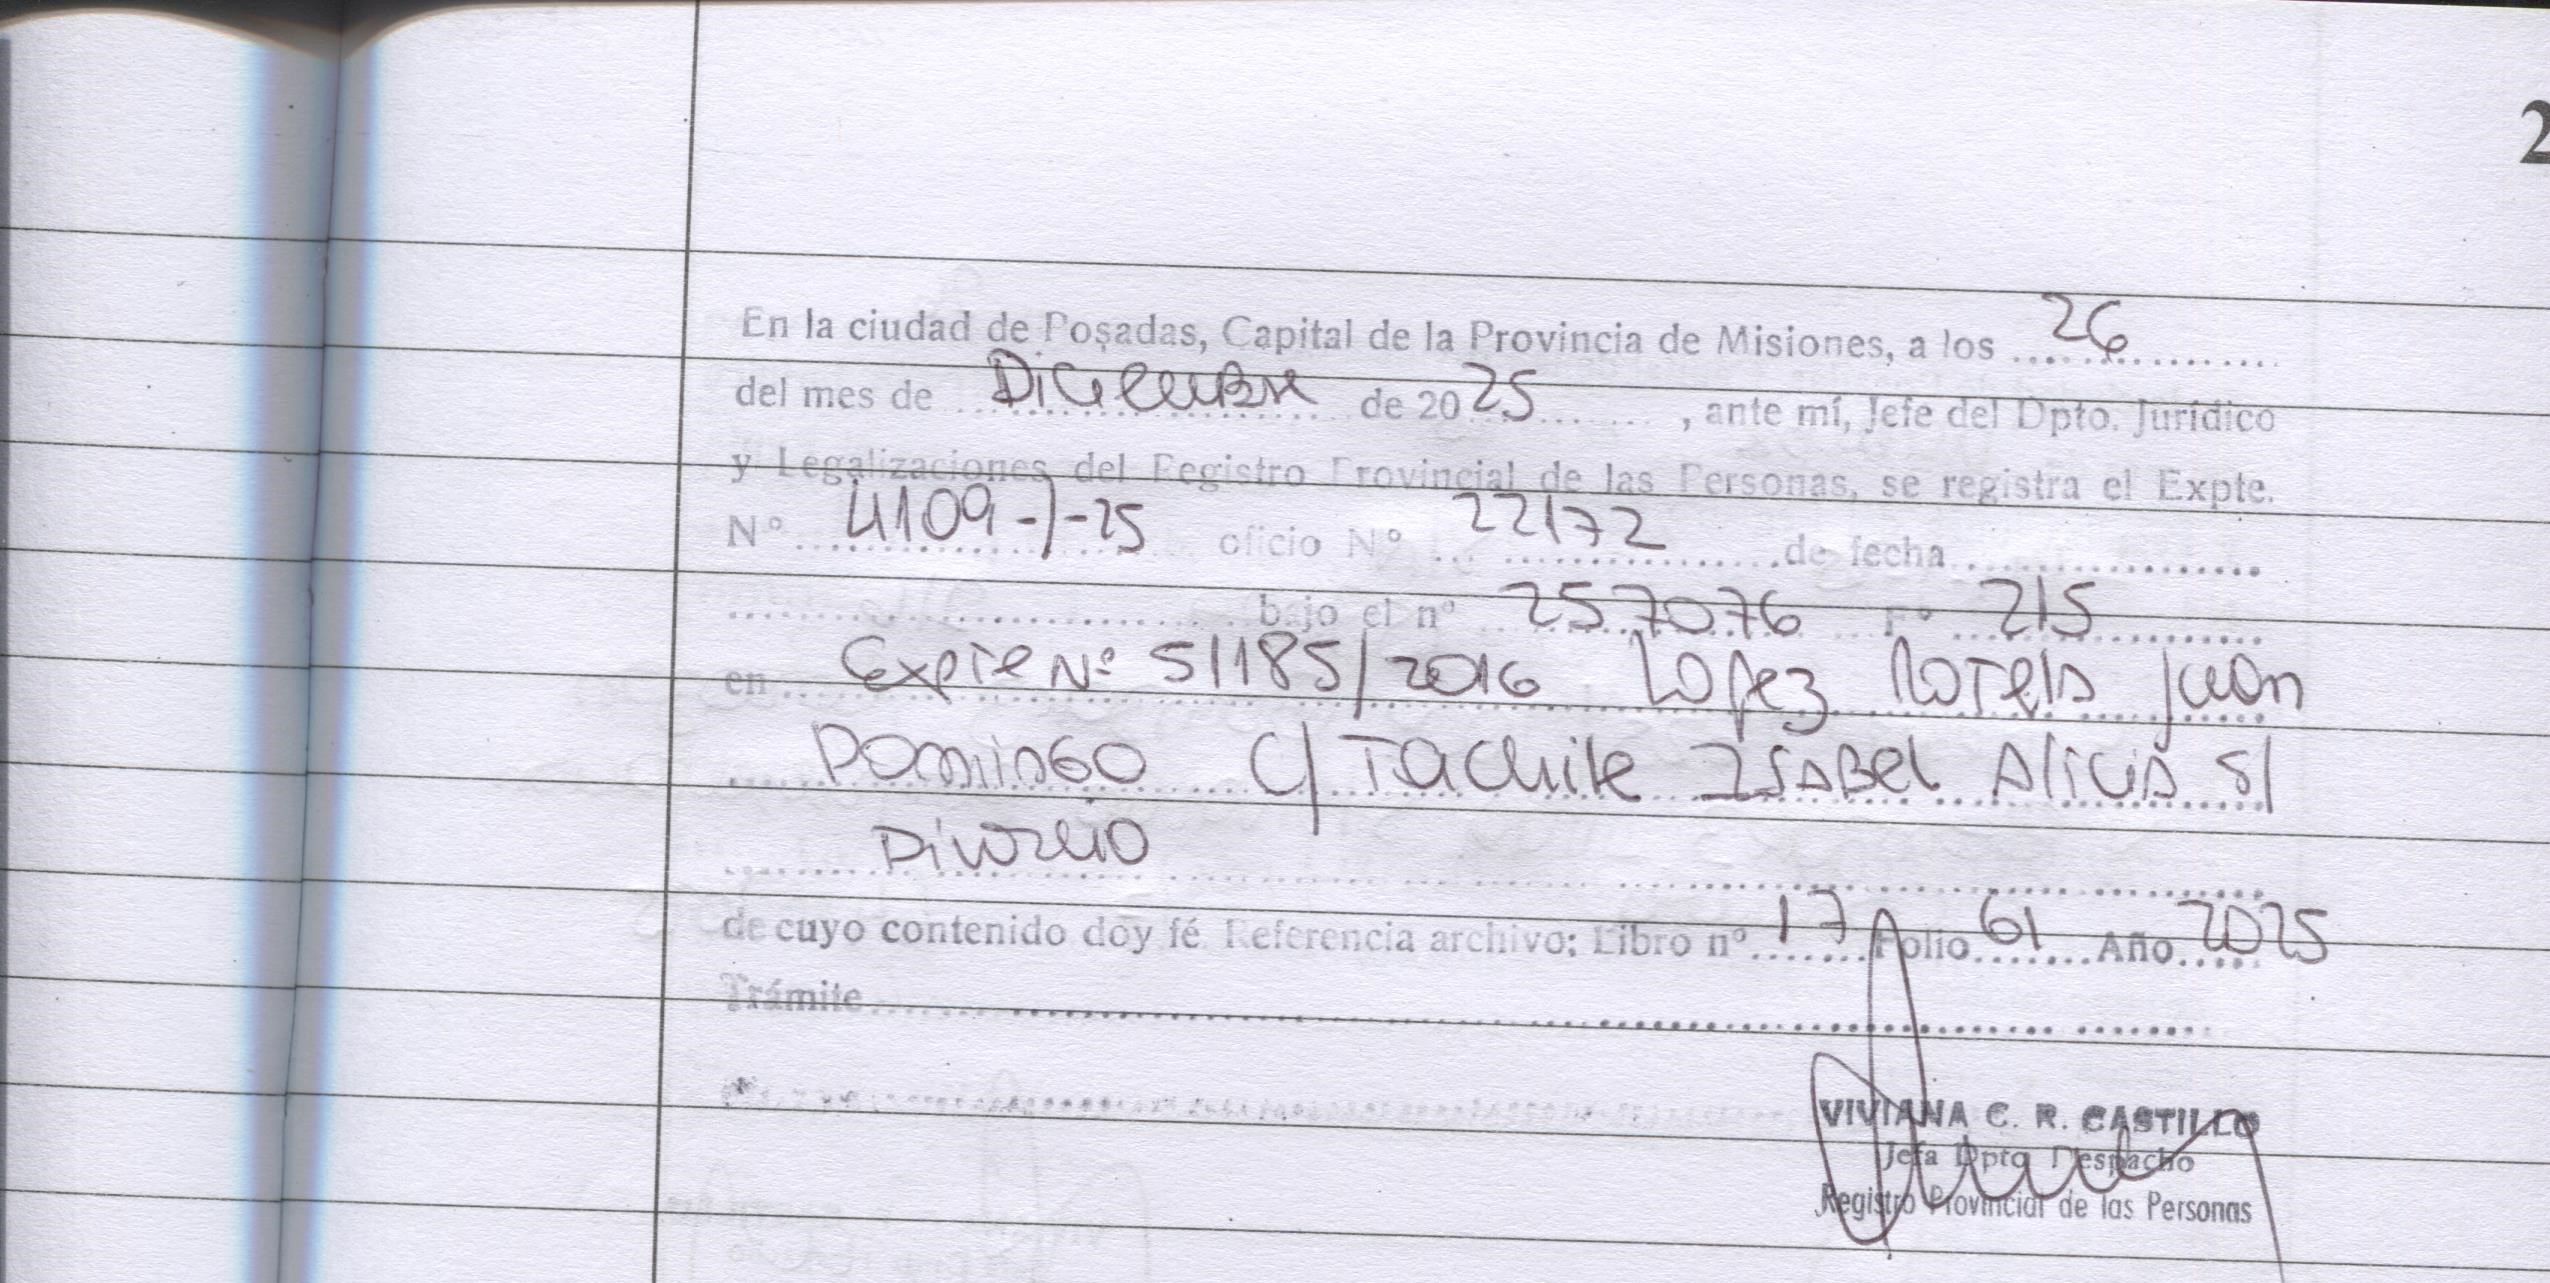 2
En la ciudad de Posadas, Capital de la Provincia de Misiones, a los 26
del mes de Diciembre de 2025, ante mí, Jefe del Dpto. Jurídico
y Legalizaciones del Registro Provincial de las Personas, se registra el Expte.
Nº 4109-J-25 oficio Nº 22172 de fecha
bajo el nº 257076 Fº 215
en Expte Nº 51185/2016 Lopez Rotela Juan
Domingo C/ Tachile Isabel Alicia S/
Divorcio
de cuyo contenido doy fé Referencia archivo: Libro nº 17 Folio 61 Año 2025
Trámite
VIVIANA C. R. CASTILLO
Jefa Dpto Despacho
Registro Provincial de las Personas